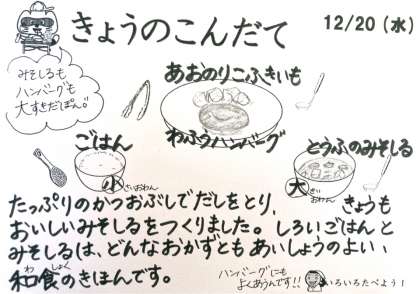 きょうのこんだて
12/20（水）
みそしるも
ハンバーグも
大すきだぽん。
あおのりこふきいも
わふうハンバーグ
ごはん
小
さいおわん
とうふのみそしる
大
きい
おわん
たっぷりのかつおぶしでだしをとり、きょうも
おいしいみそしるをつくりました。しろいごはんと
みそしるは、どんなおかずともあいしょうのよい、
和食のきほんです。
わしょく
ハンバーグにも
よくあうんです!!
いろいろたべよう!